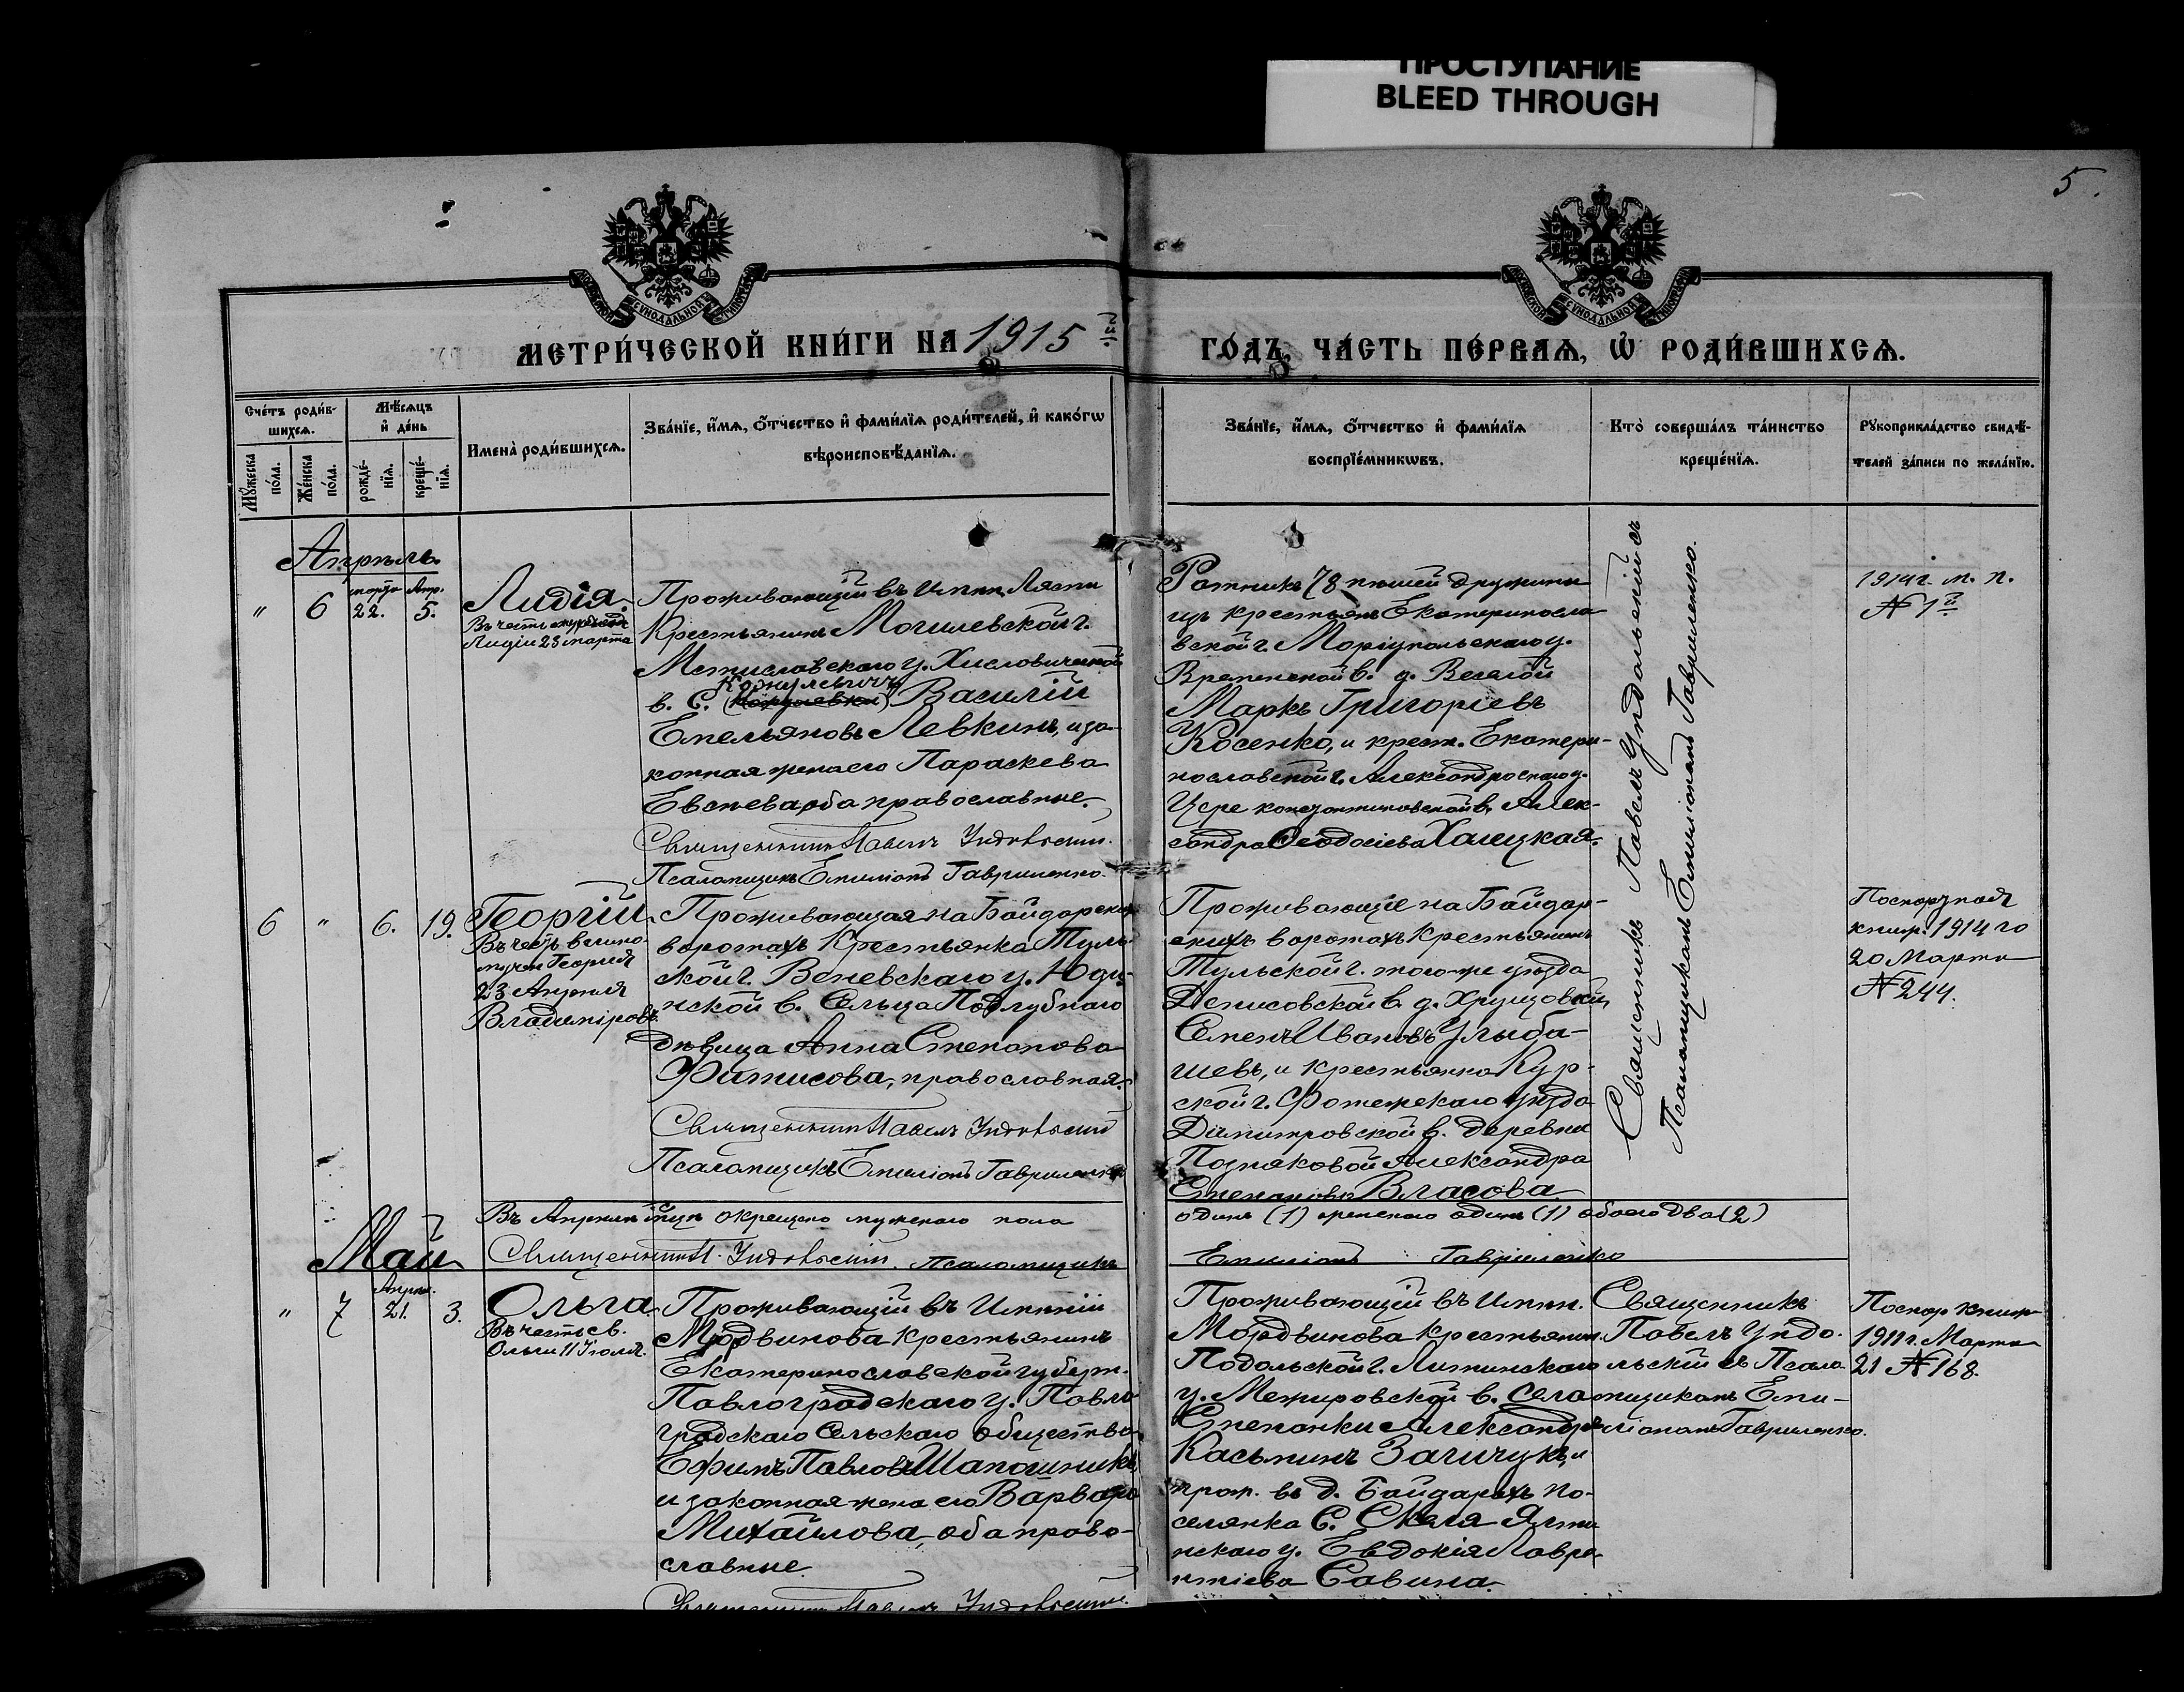 ПРОСТУПАНИЕ
BLEED THROUGH
5.
МЕТРИ́ЧЕСКОЙ КНИ́ГИ НА 1915й
ГО́ДЪ, ЧА́СТЬ ПЕ́РВАѦ, Ѡ҆ РОДИ́ВШИХСѦ.
Сче́тъ роди́в-
шихсѧ.
Мѣ́сѧцъ
и҆ де́нь
Мꙋ́жеска
по́ла.
Же́нска
по́ла.
рожде́-
нїѧ.
креще́-
нїѧ.
Имена̀ роди́вшихсѧ.
Зва́нїе, и҆́мѧ, ѻ҆́тчество и҆ фами́лїѧ роди́телей, и҆ како́гѡ
вѣроисповѣ́данїѧ.
Зва́нїе, и҆́мѧ, ѻ҆́тчество и҆ фами́лїѧ
воспрїе́мникѡвъ.
Кто̀ соверша́лъ та́инство
креще́нїѧ.
Рꙋкоприкла́дство свидѣ́-
телей за́писи по жела́нїю.
Апрѣль.
марта Апр.
" 6 22. 5.
Лидія.
Въ честь
Лидіи 23 марта
Проживающій въ имѣн. Ляспи
Крестьянинъ Могилевской г.
Мстиславскаго у. Хиславичской
в. С. Василій
Емельяновъ Левкинъ, и за-
конная жена его Параскева
Евсиева, оба православные.
Священникъ Павелъ Ундольскій.
Псаломщикъ Емиліанъ Гавриленко.
Ратникъ 78 пѣшей дружины
изъ крестьянъ Екатериносла
вской г. Маріупольскаго у.
Времевской в. д. Веселой
Маркъ Григоріевъ
Косенко, и крест. Екатери-
нославской г. Александровскаго у.
Царе константиновской в. Алек-
сандра Ѳеодосіева Халецкая.
Священникъ Павелъ Ундольскій съ
Псаломщикомъ Емиліаномъ Гавриленко.
1914 г. м. п.
№ 1й
6 " 6. 19.
Георгій
Въ честь велико
мучен Георгія
23 Апрѣля
Владиміровъ.
Проживающая на Байдарскихъ
воротахъ Крестьянка Туль
ской г. Веневскаго у. Юди-
нской в. Сельца Поллубнаго
дѣвица Анна Степанова
Фатисова, православная.
Священникъ Павелъ Ундольскій
Псаломщикъ Емиліанъ Гавриленко
Проживающіе на Байдар-
скихъ воротахъ Крестьянинъ
Тульской г. того-же уѣзда
Денисовской в. д. Хрущовки,
Семенъ Ивановъ Улыба-
шевъ, и крестьянка Кур-
ской г. Фатежскаго уѣзда
Димитровской в. деревни
Поздняковой Александра
Степанова Власова.
книж. 1914 го
20 Марта
№ 244.
Въ Апрѣлѣ мцѣ окрещено мужескаго пола
одинъ (1) женскаго одинъ (1) обоего два (2)
Священникъ П. Ундольскій. Псаломщикъ
Емиліанъ Гавриленко
Май
Апрѣл.
" 7 21. 3.
Ольга.
Въ честь св.
Ольги 11 Іюля.
Проживающій въ Имѣніи
Мордвинова крестьянинъ
Екатеринославской губерн.
Павлоградскаго у. Павло
градскаго Сельскаго общества
Ефимъ Павловъ Шапошникъ
и законная жена его Варвара
Михайлова, оба право-
славные.
Священникъ Павелъ Ундольскій
Проживающій въ Имѣн.
Мордвинова крестьянин.
Подольской г. Литинскаго
у. Межировской в. села
Степанки Александръ
Касьминъ Загичукъ, и
прож. въ д. Байдарахъ по-
селянка С. Скеля Ялти
нскаго у. Евдокія Лавре-
нтіева Савина.
Священникъ
Павелъ Ундо.
льскій съ Псало
мщикомъ Еми-
ліаномъ Гавриленко.
Паспор книж
1911 г. Марта
21 № 168.